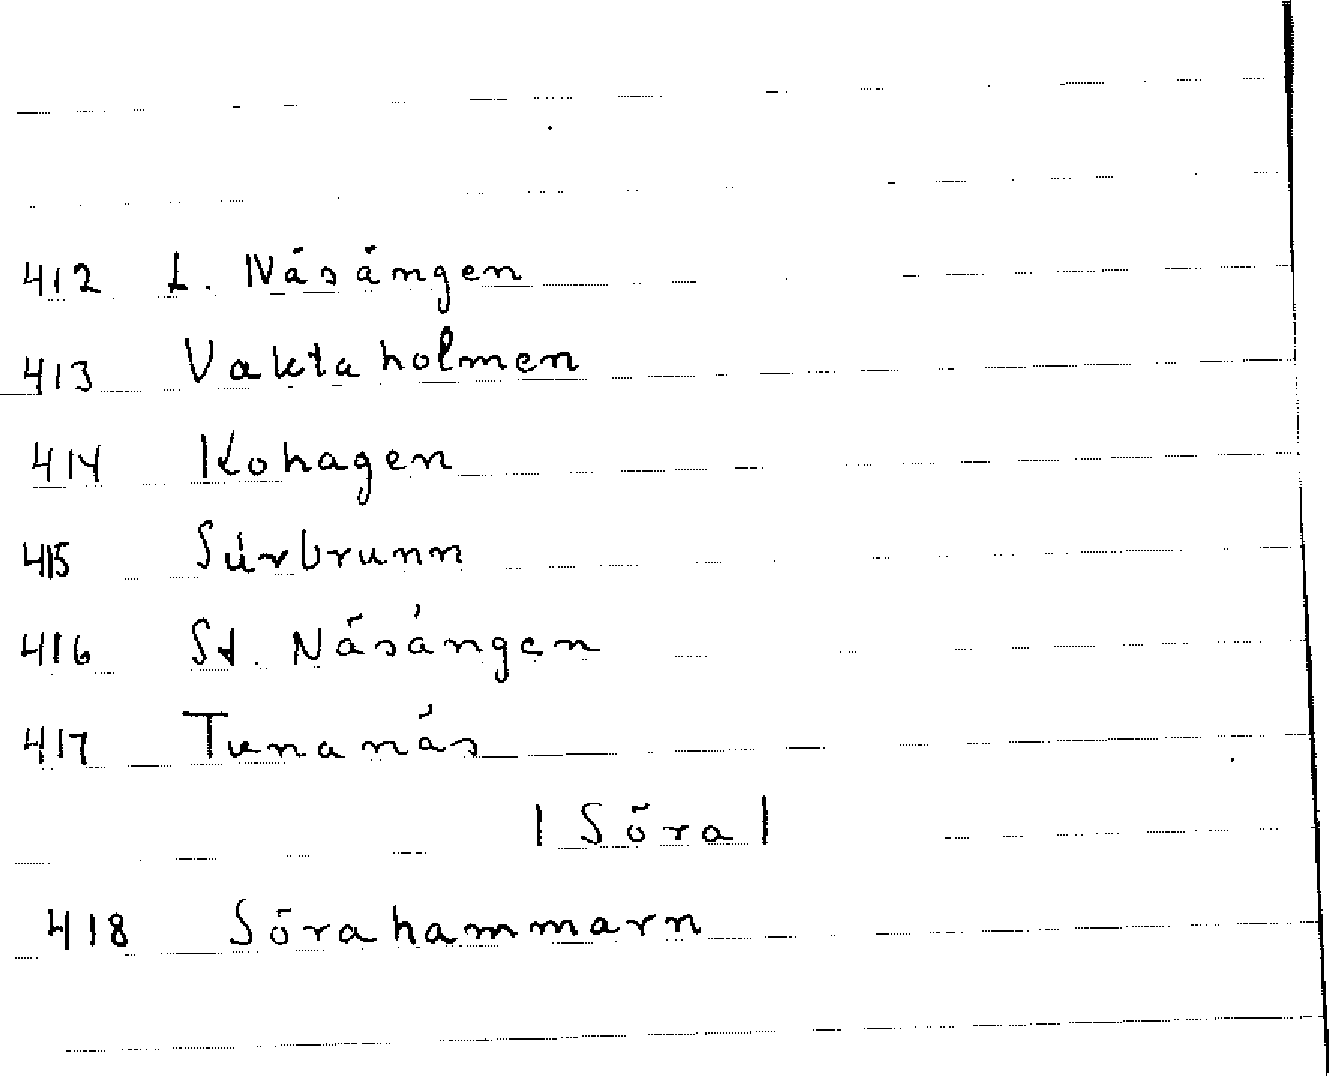 412 L. Näsängen
413 Vaktaholmen
414 Kohagen
415 Surbrunn
416 St. Näsängen
417 Tunanäs
|Söra|
418 Sörahammarn